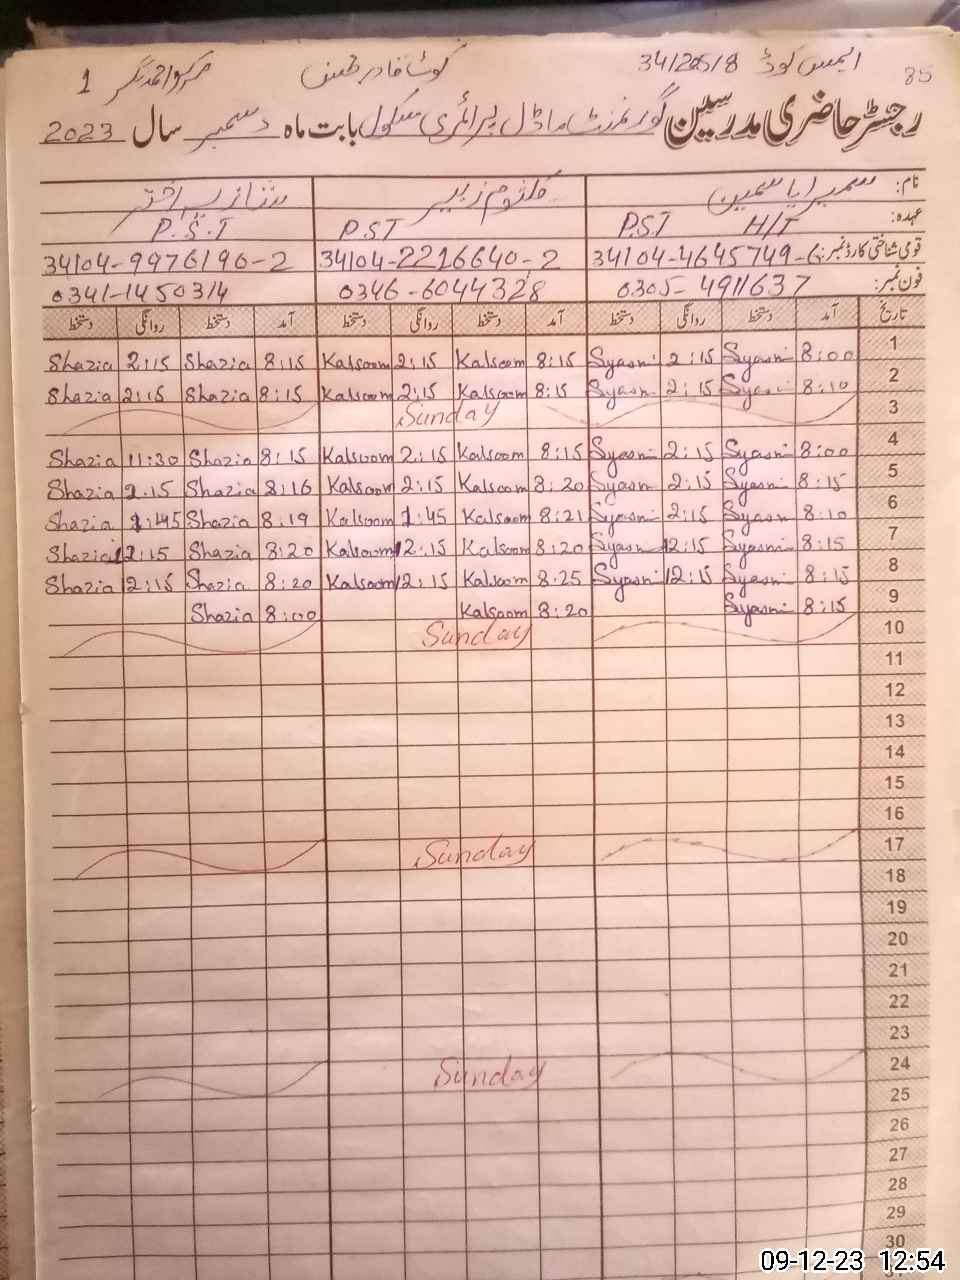 ایمس کوڈ 34126518 کوٹ قادر بخش مرکز احمد نگر 1
85
رجسٹر حاضری مدرسین گورنمنٹ ماڈل پرائمری سکول بابت ماہ دسمبر سال 2023
نام: سمیرا یاسمین کلثوم زبیر شازیہ اختر
عہدہ: H/T P.S.T P.S.T P.S.T
قومی شناختی کارڈ نمبر: 34104-4645749-6 34104-2216640-2 34104-9976190-2
فون نمبر: 0305-4911637 0346-6044328 0341-1450314
تاریخ آمد دستخط روانگی دستخط آمد دستخط روانگی دستخط آمد دستخط روانگی دستخط
Shazia 2:15 Shazia 8:15 Kalsoom 2:15 Kalsoom 8:15 Syasmi 2:15 Syasmi 8:00 1
Shazia 2:15 Shazia 8:15 Kalsoom 2:15 Kalsoom 8:15 Syasmi 2:15 Syasmi 8:10 2
Sunday 3
Shazia 11:30 Shazia 8:15 Kalsoom 2:15 Kalsoom 8:15 Syasmi 2:15 Syasmi 8:00 4
Shazia 2:15 Shazia 8:16 Kalsoom 2:15 Kalsoom 8:20 Syasmi 2:15 Syasmi 8:15 5
Shazia 1:45 Shazia 8:19 Kalsoom 1:45 Kalsoom 8:21 Syasmi 2:15 Syasmi 8:10 6
Shazia 12:15 Shazia 8:20 Kalsoom 12:15 Kalsoom 8:20 Syasmi 12:15 Syasmi 8:15 7
Shazia 12:15 Shazia 8:20 Kalsoom 12:15 Kalsoom 8:25 Syasmi 12:15 Syasmi 8:15 8
Shazia 8:00 Kalsoom 8:20 Syasmi 8:15 9
Sunday 10
11
12
13
14
15
16
Sunday 17
18
19
20
21
22
23
Sunday 24
25
26
27
28
29
30
09-12-23 12:54